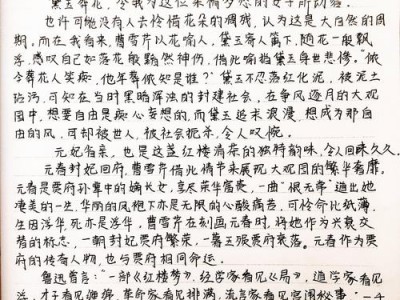 黛玉葬花，令我为这位柔情梦怨的女子所动容。
也许可能没有人去怜惜花朵的凋残，认为这是大自然的周
期，而在我看来，曹雪芹以花喻人，黛玉寄人篱下，随花一般飘
零，感叹自己如落花般黯然神伤，借此喻指黛玉身世悲惨。“侬
今葬花人笑痴，他年葬侬知是谁？”黛玉不忍落红化泥，被泥土
玷污，可知在当时黑暗浑浊的封建社会，在争风逐月的大观
园中，想要自由是痴心妄想的，而黛玉追求浪漫，想成为那自
由的风，可却被世人，被社会扼杀，令人叹惋。
元妃省亲，也是这盏红楼清茶的独特韵味，令人回味久久。
元春封妃回府，曹雪芹借此情节来展现大观园的繁华奢靡。
元春是贾府孙辈中的嫡长女，享尽荣华富贵，一曲“恨无常”道出她
凄美的一生，华丽的风袍下亦是无限的心酸病苦，可怜命比纸薄，
生因浮华，死亦是浮华，曹雪芹在刻画元春时，将她作为兴衰交
替的标志，一朝封妃贾府繁荣，一薨五族贾府衰落。元春作为贾
府的传奇人物，也与贾府相同命运。
鲁迅曾言：“一部《红楼梦》，经学家看见《易》，道学家看见
淫，才子看见缠绵，革命家看见排满，流言家看见宫闱秘事